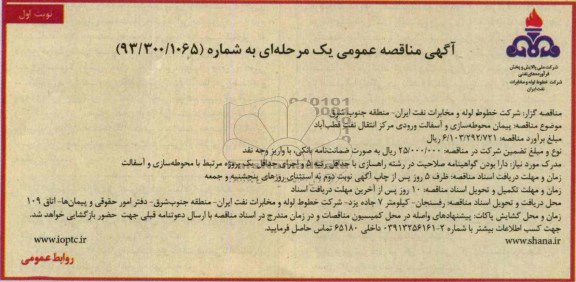 نوبت اول
شرکت ملی پالایش و پخش
فرآورده‌های نفتی
شرکت خطوط لوله و مخابرات
نفت ایران
آگهی مناقصه عمومی یک مرحله‌ای به شماره (۹۳/۳۰۰/۱۰۶۵)
مناقصه گزار: شرکت خطوط لوله و مخابرات نفت ایران- منطقه جنوب‌شرق
موضوع مناقصه: پیمان محوطه‌سازی و آسفالت ورودی مرکز انتقال نفت قطب‌آباد
مبلغ برآورد مناقصه: ۶/۱۰۳/۲۹۲/۷۲۱ ریال
نوع و مبلغ تضمین شرکت در مناقصه: ۲۵/۰۰۰/۰۰۰ ریال به صورت ضمانت‌نامه بانکی، یا واریز وجه نقد
مدرک مورد نیاز: دارا بودن گواهینامه صلاحیت در رشته راهسازی با حداقل رتبه ۵ و اجرای حداقل یک پروژه مرتبط با محوطه‌سازی و آسفالت
زمان و مهلت دریافت اسناد مناقصه: ظرف ۵ روز پس از چاپ آگهی نوبت دوم به استثنای روزهای پنجشنبه و جمعه
زمان و مهلت تکمیل و تحویل اسناد مناقصه: ۱۰ روز پس از آخرین مهلت دریافت اسناد
محل دریافت و تحویل اسناد مناقصه: رفسنجان- کیلومتر ۷ جاده یزد- شرکت خطوط لوله و مخابرات نفت ایران- منطقه جنوب‌شرق- دفتر امور حقوقی و پیمان‌ها- اتاق ۱۰۹
زمان و محل گشایش پاکات: پیشنهادهای واصله در محل کمیسیون مناقصات و در زمان مندرج در اسناد مناقصه با ارسال دعوتنامه قبلی جهت حضور بازگشایی خواهد شد.
جهت کسب اطلاعات بیشتر با شماره ۲-۰۳۹۱۳۲۵۶۱۶۱ داخلی ۶۵۱۸۰ تماس حاصل فرمایید.
www.shana.ir www.ioptc.ir
روابط عمومی